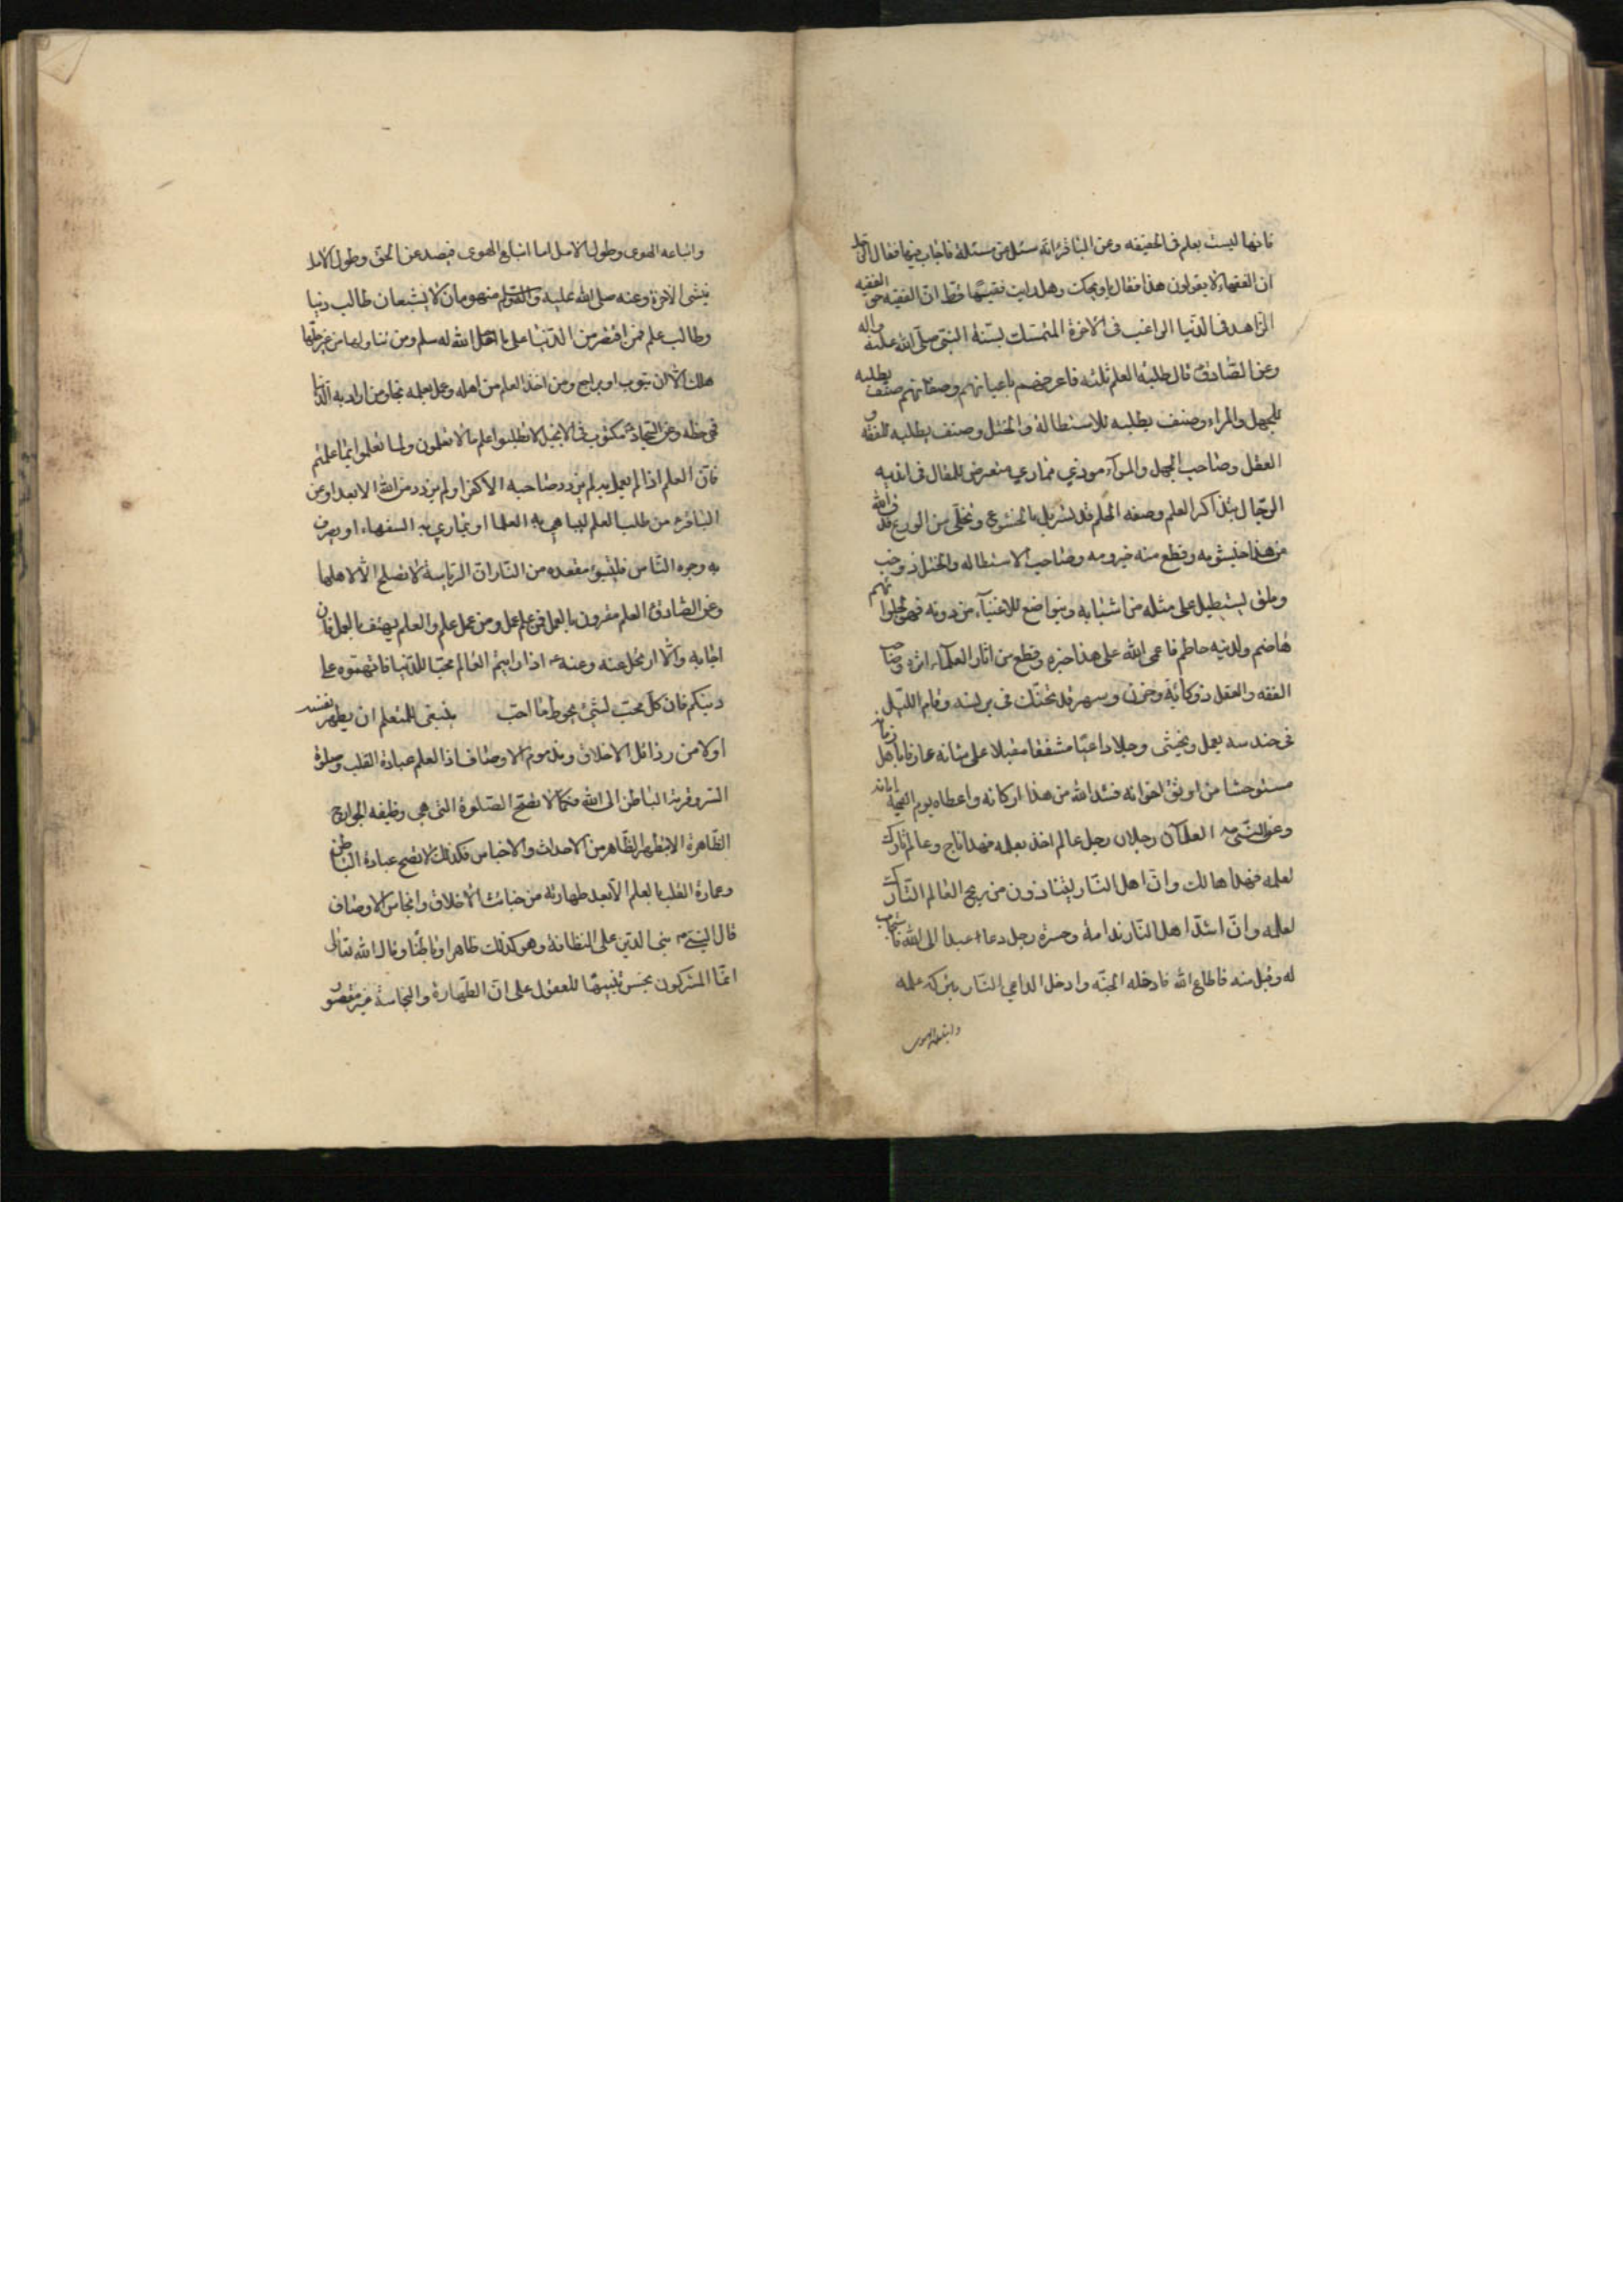 فانها ليست بعلم في الحقيقه وعن الباقر انه سئل عن مسئلة فاجاب فيها فقال الرجل
ان الفقهاء لا يقولون هذا فقال يا ويحك وهل رايت فقيها قط ان الفقيه حق الفقيه
الزاهد في الدنيا الراغب في الاخرة المتمسك بسنة النبي صلى الله عليه واله
وعن الصادق قال طلبة العلم ثلثه فاعرفهم باعيانهم وصفاتهم صنف يطلبه
للجهل والمراء وصنف يطلبه للاستطالة والختل وصنف يطلبه للفقه و
العقل وصاحب الجهل والمرآء موذي مماري متعرض للمقال في اندية
الرجال بتذاكر العلم وصفه الحلم قد تسربل بالخشوع وتخلى من الورع فدق الله
من هذا خيشومه وقطع منه حيزومه وصاحب الاستطاله والختل ذو خب
وملق يستطيل على مثله من اشباهه ويتواضع للاغنيآء من دونه فهو لحلوائهم
هاضم ولدينه حاطم فاعمى الله على هذا خبره وقطع من اثار العلمآء اثره وصاحب
الفقه والعقل ذو كابة وحزن وسهر قد تحنك في برنسه وقام الليل
في حندسه يعمل ويخشى وجلا داعيا مشفقا مقبلا على شانه عارفا باهل زمانه
مستوحشا من اوثق اخوانه فشد الله من هذا اركانه واعطاه يوم القيمة امانه
وعن النبي ص العلمآء رجلان رجل عالم اخذ بعلمه فهذا ناج وعالم تارك
لعلمه فهذا هالك وان اهل النار ليتاذون من ريح العالم التارك
لعلمه وان اشد اهل النار ندامة وحسرة رجل دعا عبدا الى الله فاستجاب
له وقبل منه فاطاع الله فادخله الجنة وادخل الداعي النار بتركه علمه
واتباعه الهوى
واتباعه الهوى وطول الامل اما اتباع الهوى فيصد عن الحق وطول الامل
ينسى الاخرة وعنه صلى الله عليه واله منهومان لا يشبعان طالب دنيا
وطالب علم فمن اقتصر من الدنيا على ما احل الله له سلم ومن تناولها من غير حلها
هلك الا ان يتوب او يراجع ومن اخذ العلم من اهله وعمل بعلمه نجا ومن اراد به الدنيا
فهي حظه وعن السجاد مكتوب في الانجيل لا تطلبوا علم ما لا تعلمون ولما تعملوا بما علمتم
فان العلم اذا لم يعمل به لم يزدد صاحبه الا كفرا ولم يزدد من الله الا بعدا وعن
الباقر من طلب العلم ليباهي به العلما او يماري به السفهاء او يصرف
به وجوه الناس فليتبوء مقعده من النار ان الرياسة لا تصلح الا لاهلها
وعن الصادق العلم مقرون بالعمل فمن علم عمل ومن عمل علم والعلم يهتف بالعمل فان
اجابه والا ارتحل عنه وعنه اذا رايتم العالم محبا للدنيا فاتهموه على
دينكم فان كل محب لشئ يحوط ما احب ينبغي للمتعلم ان يطهر نفسه
اولا من رذائل الاخلاق ومذموم الاوصاف اذ العلم عبادة القلب وصلوة
السر وقربة الباطن الى الله فكما لا تصح الصلوة التي هي وظيفه الجوارح
الظاهرة الا بتطهير الظاهر من الاحداث والاخباس فكذلك لا تصح عبادة الباطن
وعمارة القلب بالعلم الا بعد طهارته من خبائث الاخلاق وانجاس الاوصاف
قال النبي ص بني الدين على النظافة وهو كذلك ظاهرا وباطنا وقال الله تعالى
انما المشركون نجس تنبيها للعقول على ان الطهارة والنجاسة غير مقصور